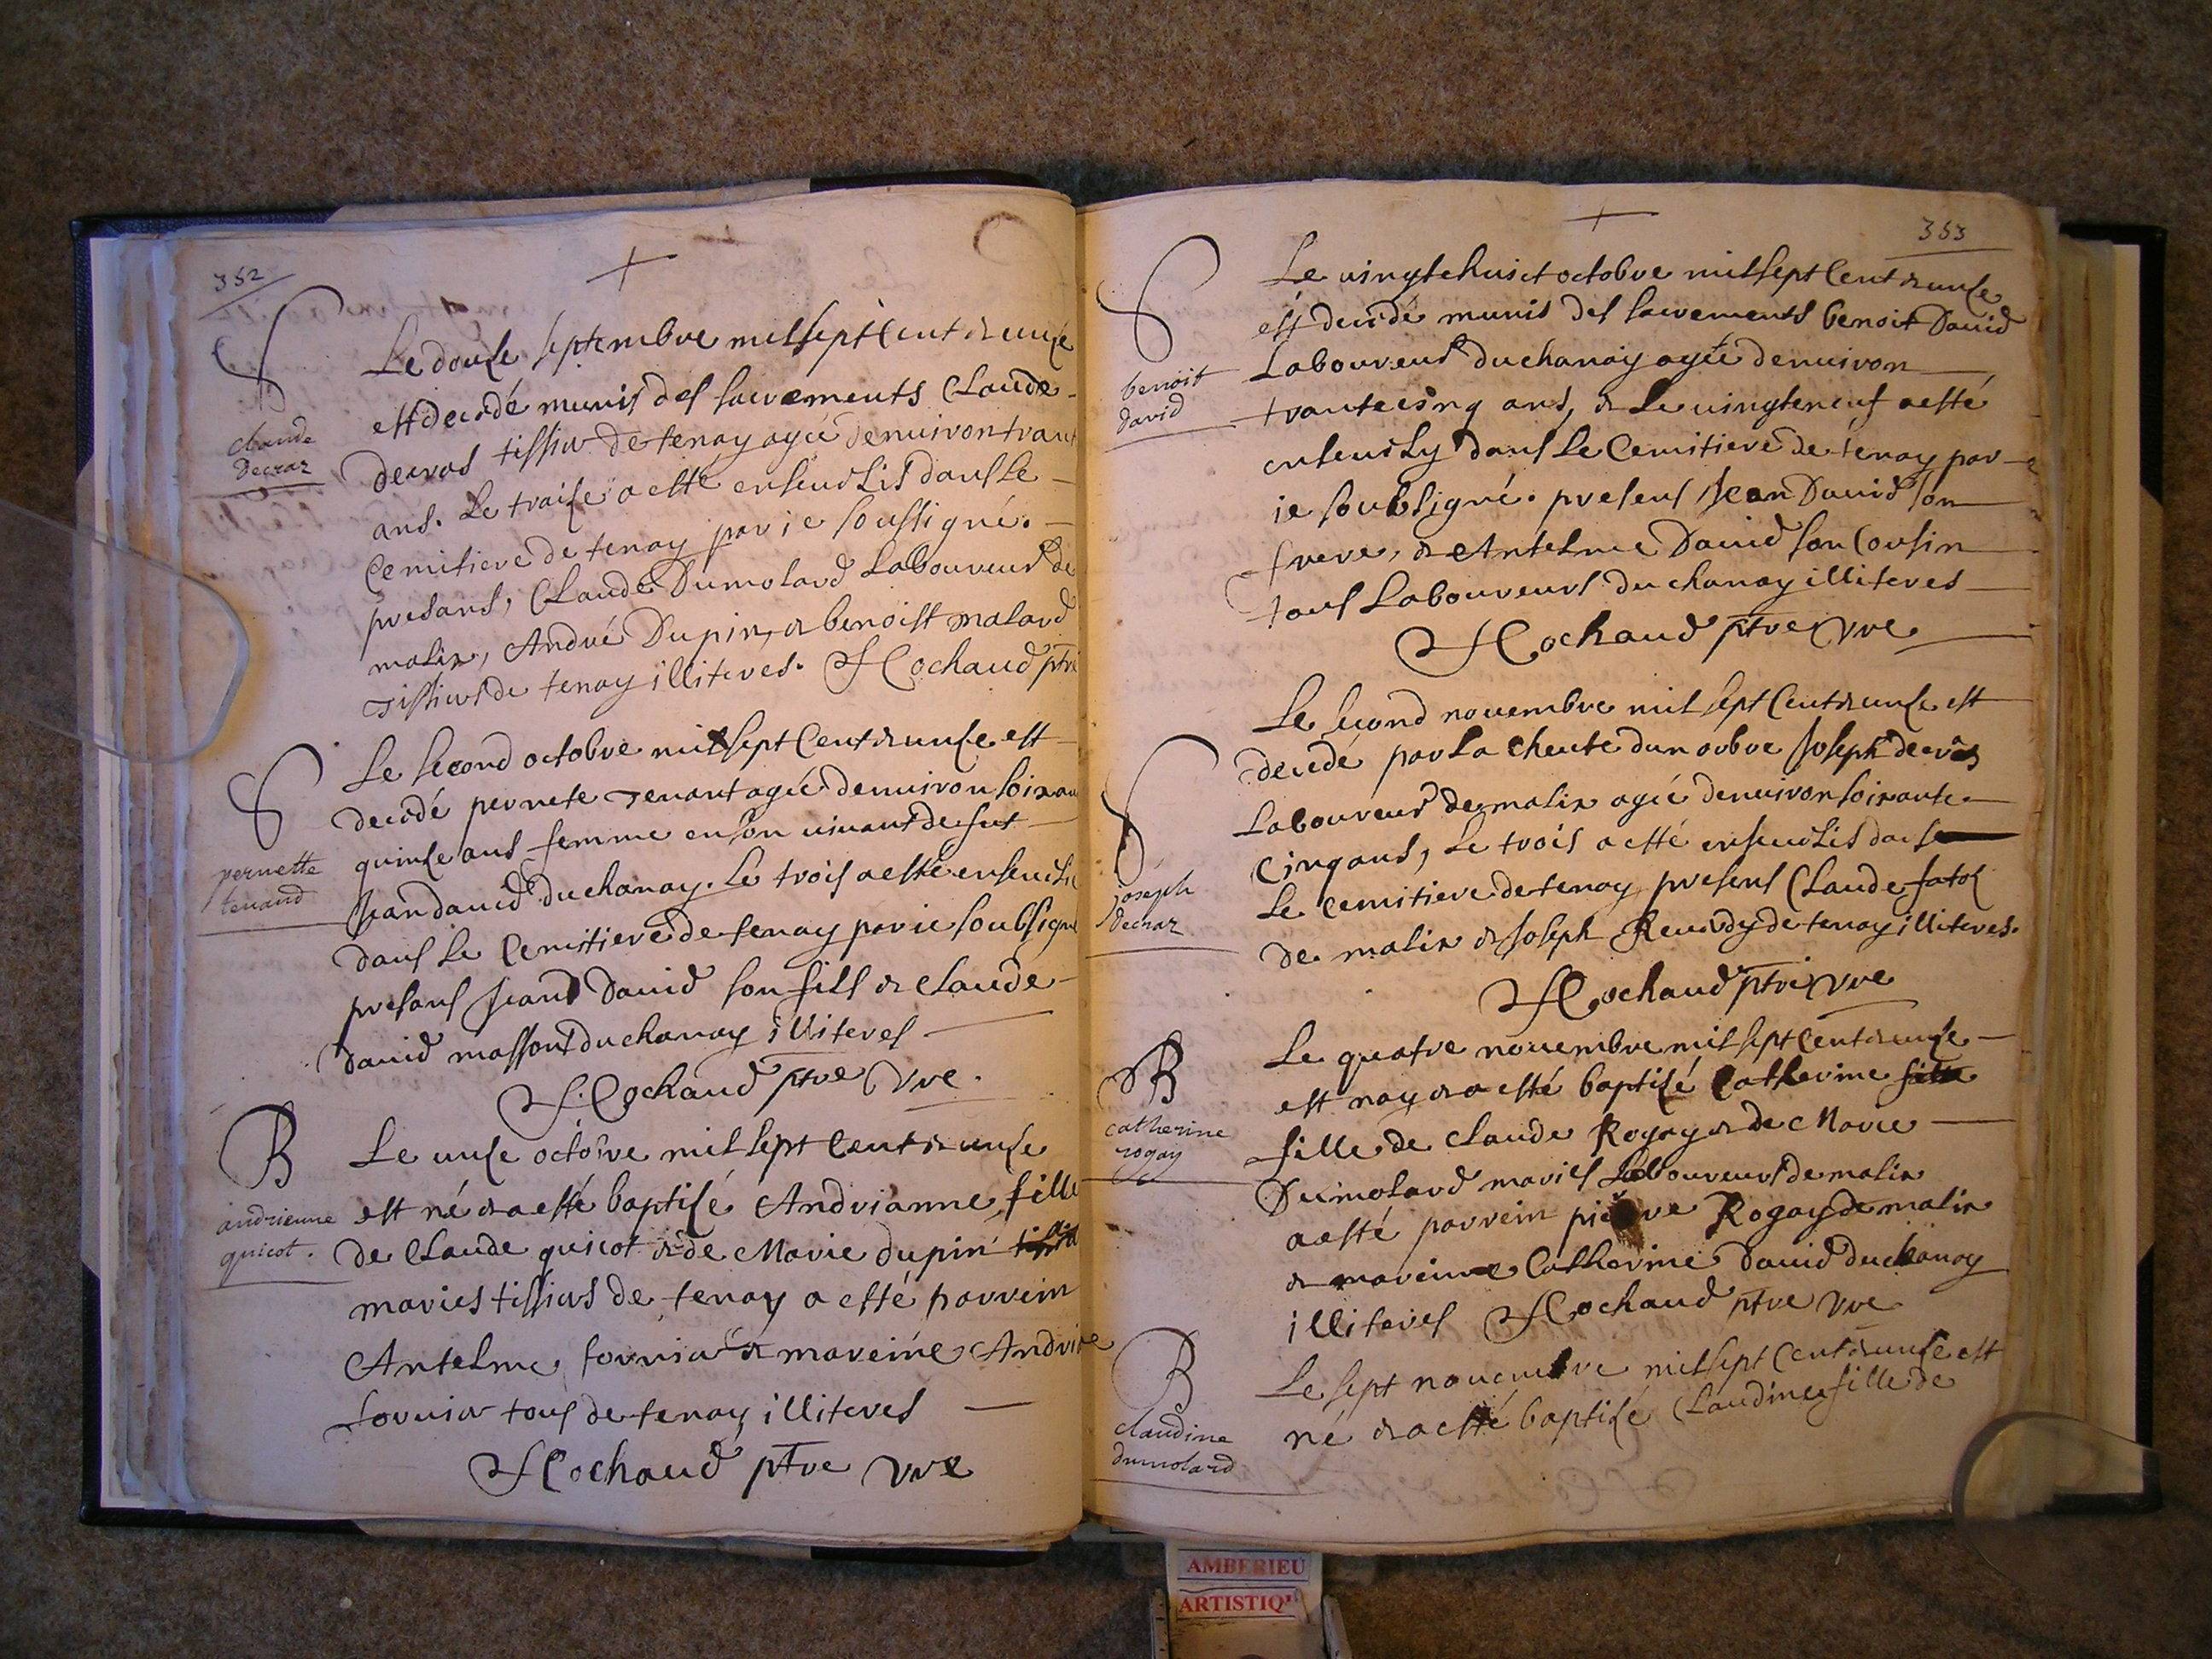 352
Le douse septembre mil sept Cent & unse
est decedé munis des sacrements Claude
claude
decraz
decras tissier de tenay agée denuiron trant
ans. Le traise a esté enseuelis dans le
Cemitiere de tenay par ie soussigné.
presans, Claude Dumolard Laboureur de
malix, André Dupin, & benoist malard
Tissiers de tenay illiteres. F Cochaud ptre
Le second octobre mil sept Cent & unse est
decedé pernete Tenant agée denuiron soixan
pernette
tenand
quinse ans femme en son uiuant de fut
Jean dauid du chanay. Le trois a esté enseueli
dans le Cemitiere de tenay par ie soubsigné
presans Jean David son fils & Claude
dauid massons du chanay illiteres
F. Cochaud ptre Vre.
B
Le unse octobre mil sept Cent & unse
est né & a esté baptisé Andrianne fille
andrienne
guicot.
de Claude guicot & de Marie dupin
maries tissiers de tenay a esté parrein
Antelme fornier & mareine Andrire
fornier tous de tenay illiteres
F Cochaud ptre Vre
353
Le uingtehuict octobre mil sept Cent & unse
est decedé munis des sacrements benoit Dauid
benoit
david
Laboureur du chanay agée denuiron
trantecinq ans, & Le uingteneuf a esté
enseuely dans Le Cemitiere de tenay par
ie soubsigné. presens Jean Dauid son
frere, & Antelme Dauid son Cousin
tous Laboureurs du chanay illiteres
F Cochaud ptre Vre
Le second nouembre mil sept Cent & unse est
decedé par La cheute dun arbre Joseph decras
joseph
decraz
Laboureur de malix agée denuiron soixante
Cinq ans, Le trois a esté enseuelis dans
Le Cemitiere de tenay presens Claude fatos
de malix & Joseph Reuirdy de tenay illiteres.
F Cochaud ptre Vre
B
Le quatre nouembre mil sept Cent & unse
est nay & a esté baptisé Catherine fille
catherine
rogay
fille de Claude Rogay & de Marie
Dumolard maries Laboureurs de malix
a esté parrein pierre Rogay de malix
& mareinne Catherine Dauid du chanay
illiteres F Cochaud ptre Vre
B
Le sept nouembre mil sept Cent & unse est
né & a esté baptisé Claudine fille de
claudine
dumolard
AMBERIEU
ARTISTIQ